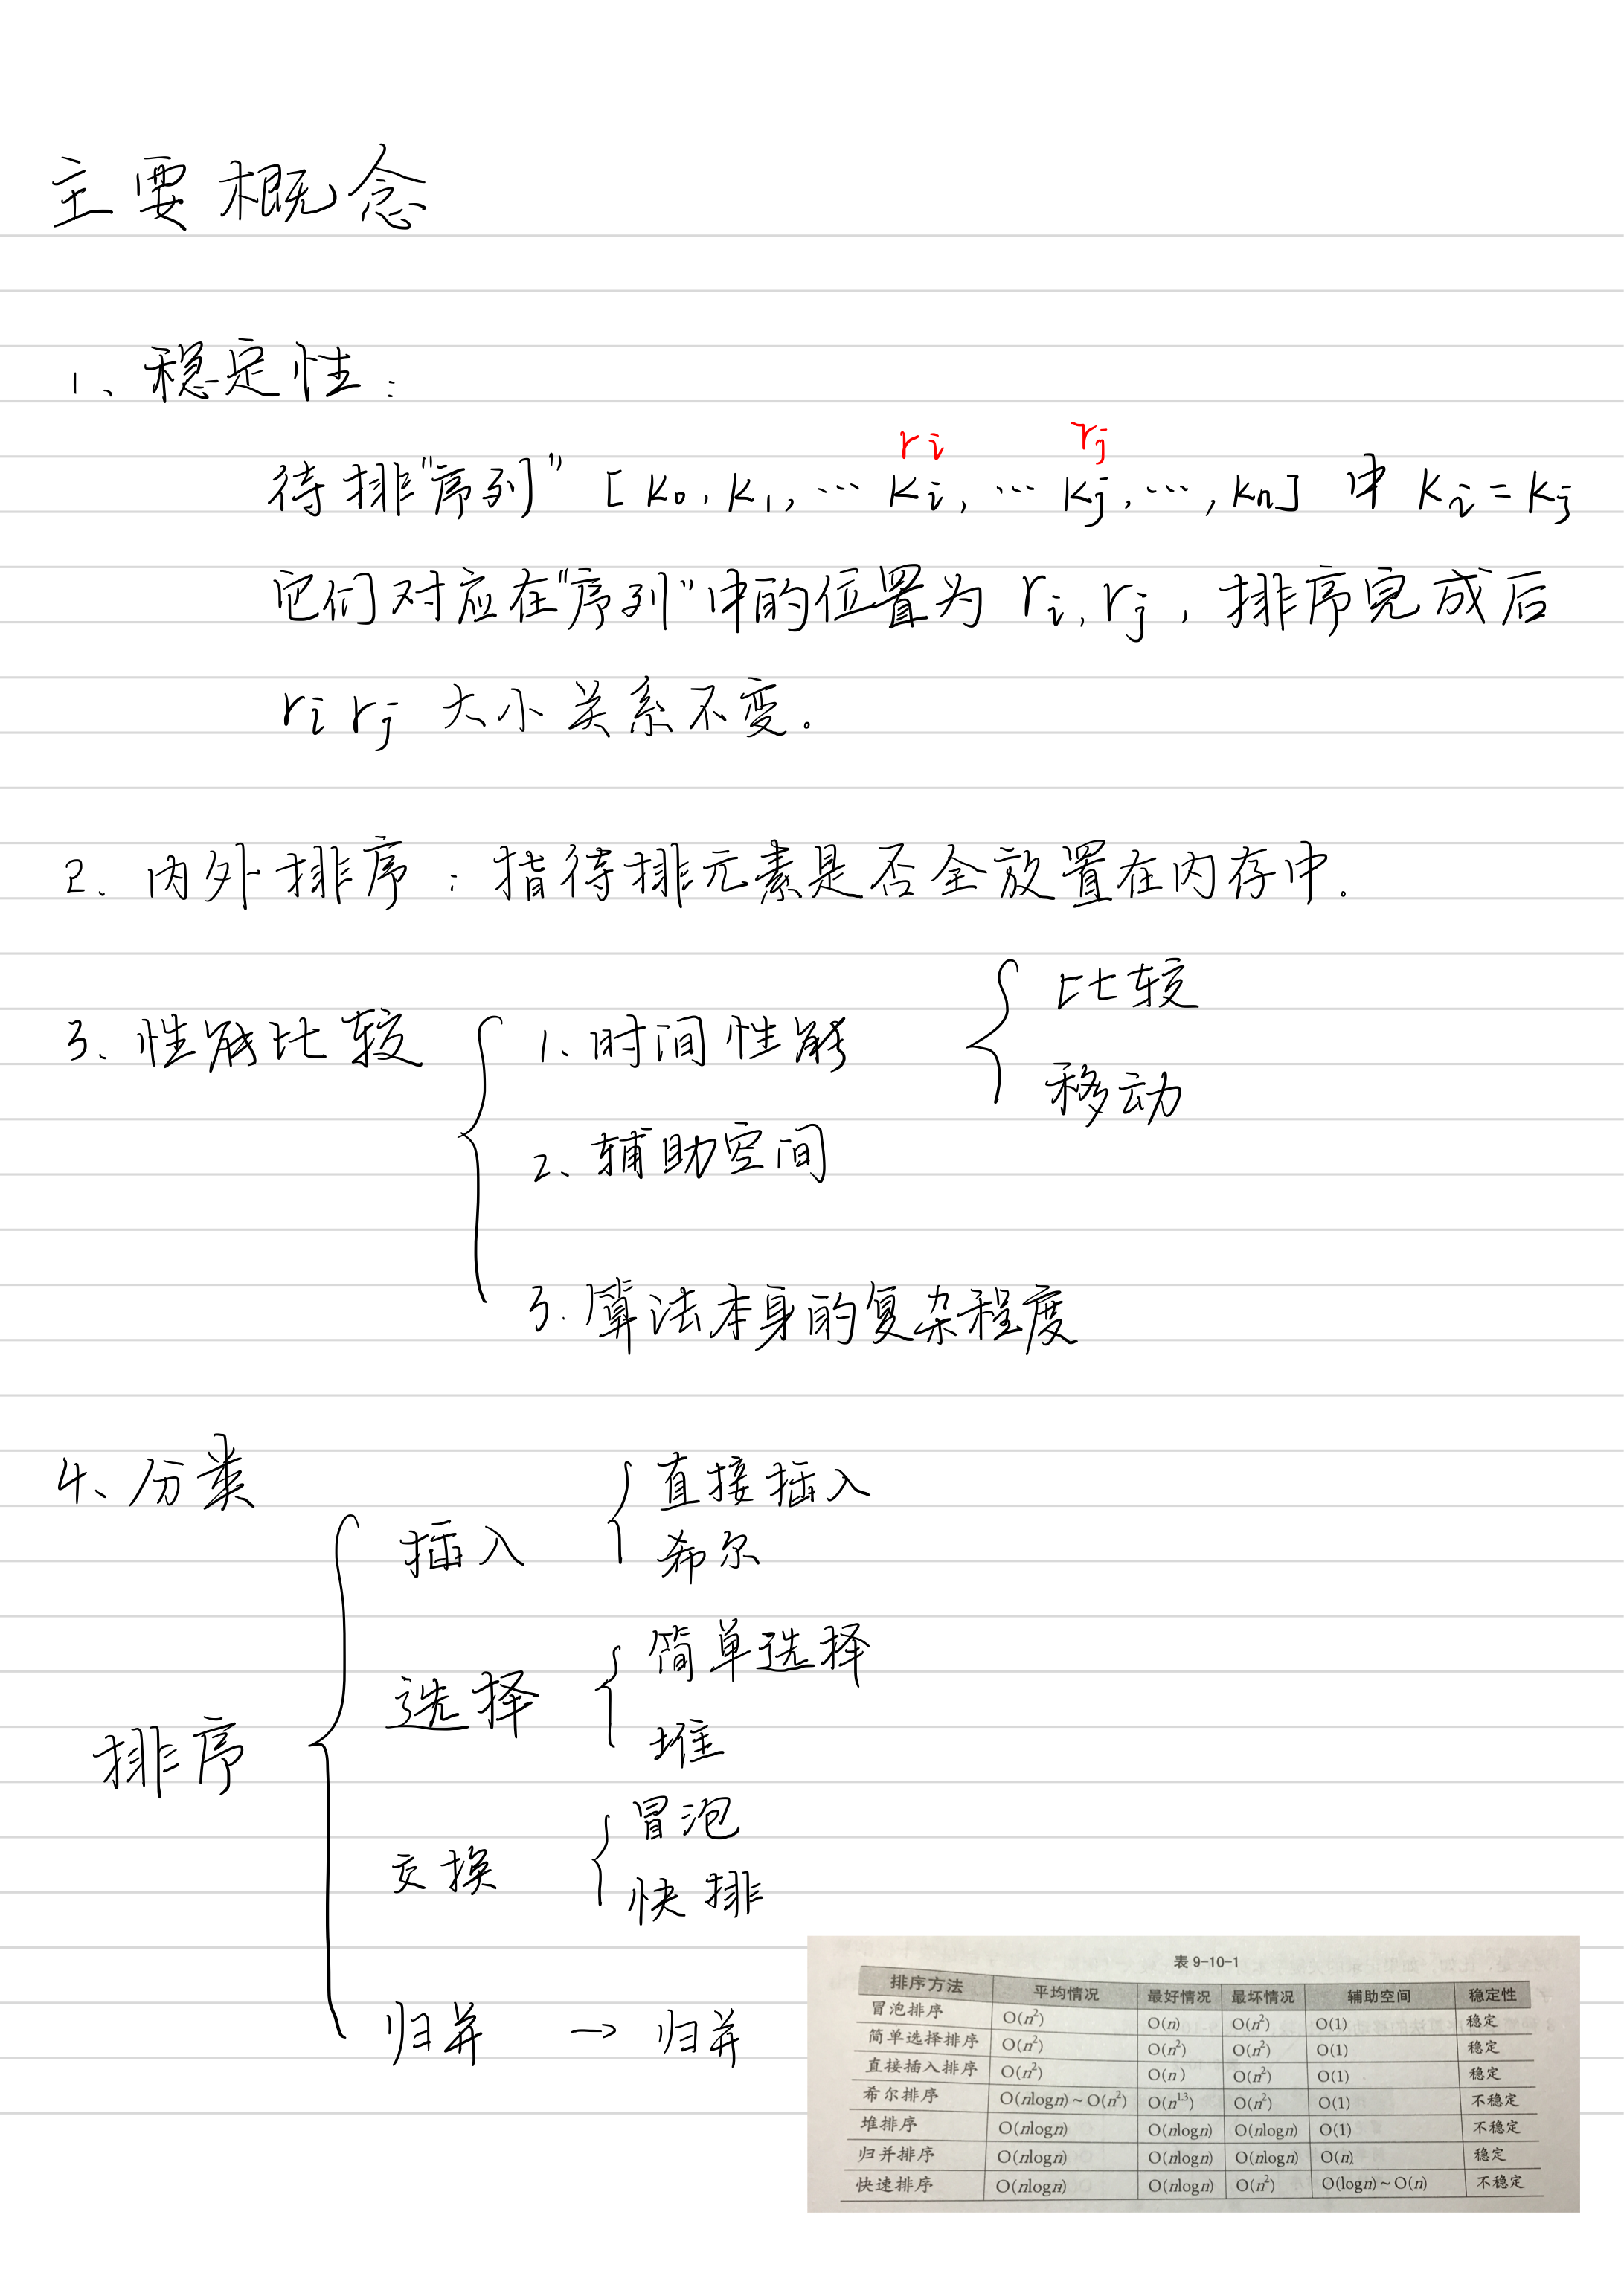 主要概念
1、稳定性：
ri rj
待排“序列” [K0, K1, … Ki, … Kj, …, Kn] 中 Ki = Kj
它们对应在“序列”中的位置为 ri, rj, 排序完成后
ri rj 大小关系不变。
2. 内外排序：指待排元素是否全放置在内存中.
3、性能比较
1、时间性能
比较
移动
2、辅助空间
3. 算法本身的复杂程度
4、分类
排序
插入
直接插入
希尔
选择
简单选择
堆
交换
冒泡
快排
归并 → 归并
表 9-10-1
排序方法 平均情况 最好情况 最坏情况 辅助空间 稳定性
冒泡排序 O(n²) O(n) O(n²) O(1) 稳定
简单选择排序 O(n²) O(n²) O(n²) O(1) 稳定
直接插入排序 O(n²) O(n) O(n²) O(1) 稳定
希尔排序 O(nlogn) ~ O(n²) O(n¹³) O(n²) O(1) 不稳定
堆排序 O(nlogn) O(nlogn) O(nlogn) O(1) 不稳定
归并排序 O(nlogn) O(nlogn) O(nlogn) O(n) 稳定
快速排序 O(nlogn) O(nlogn) O(n²) O(logn) ~ O(n) 不稳定